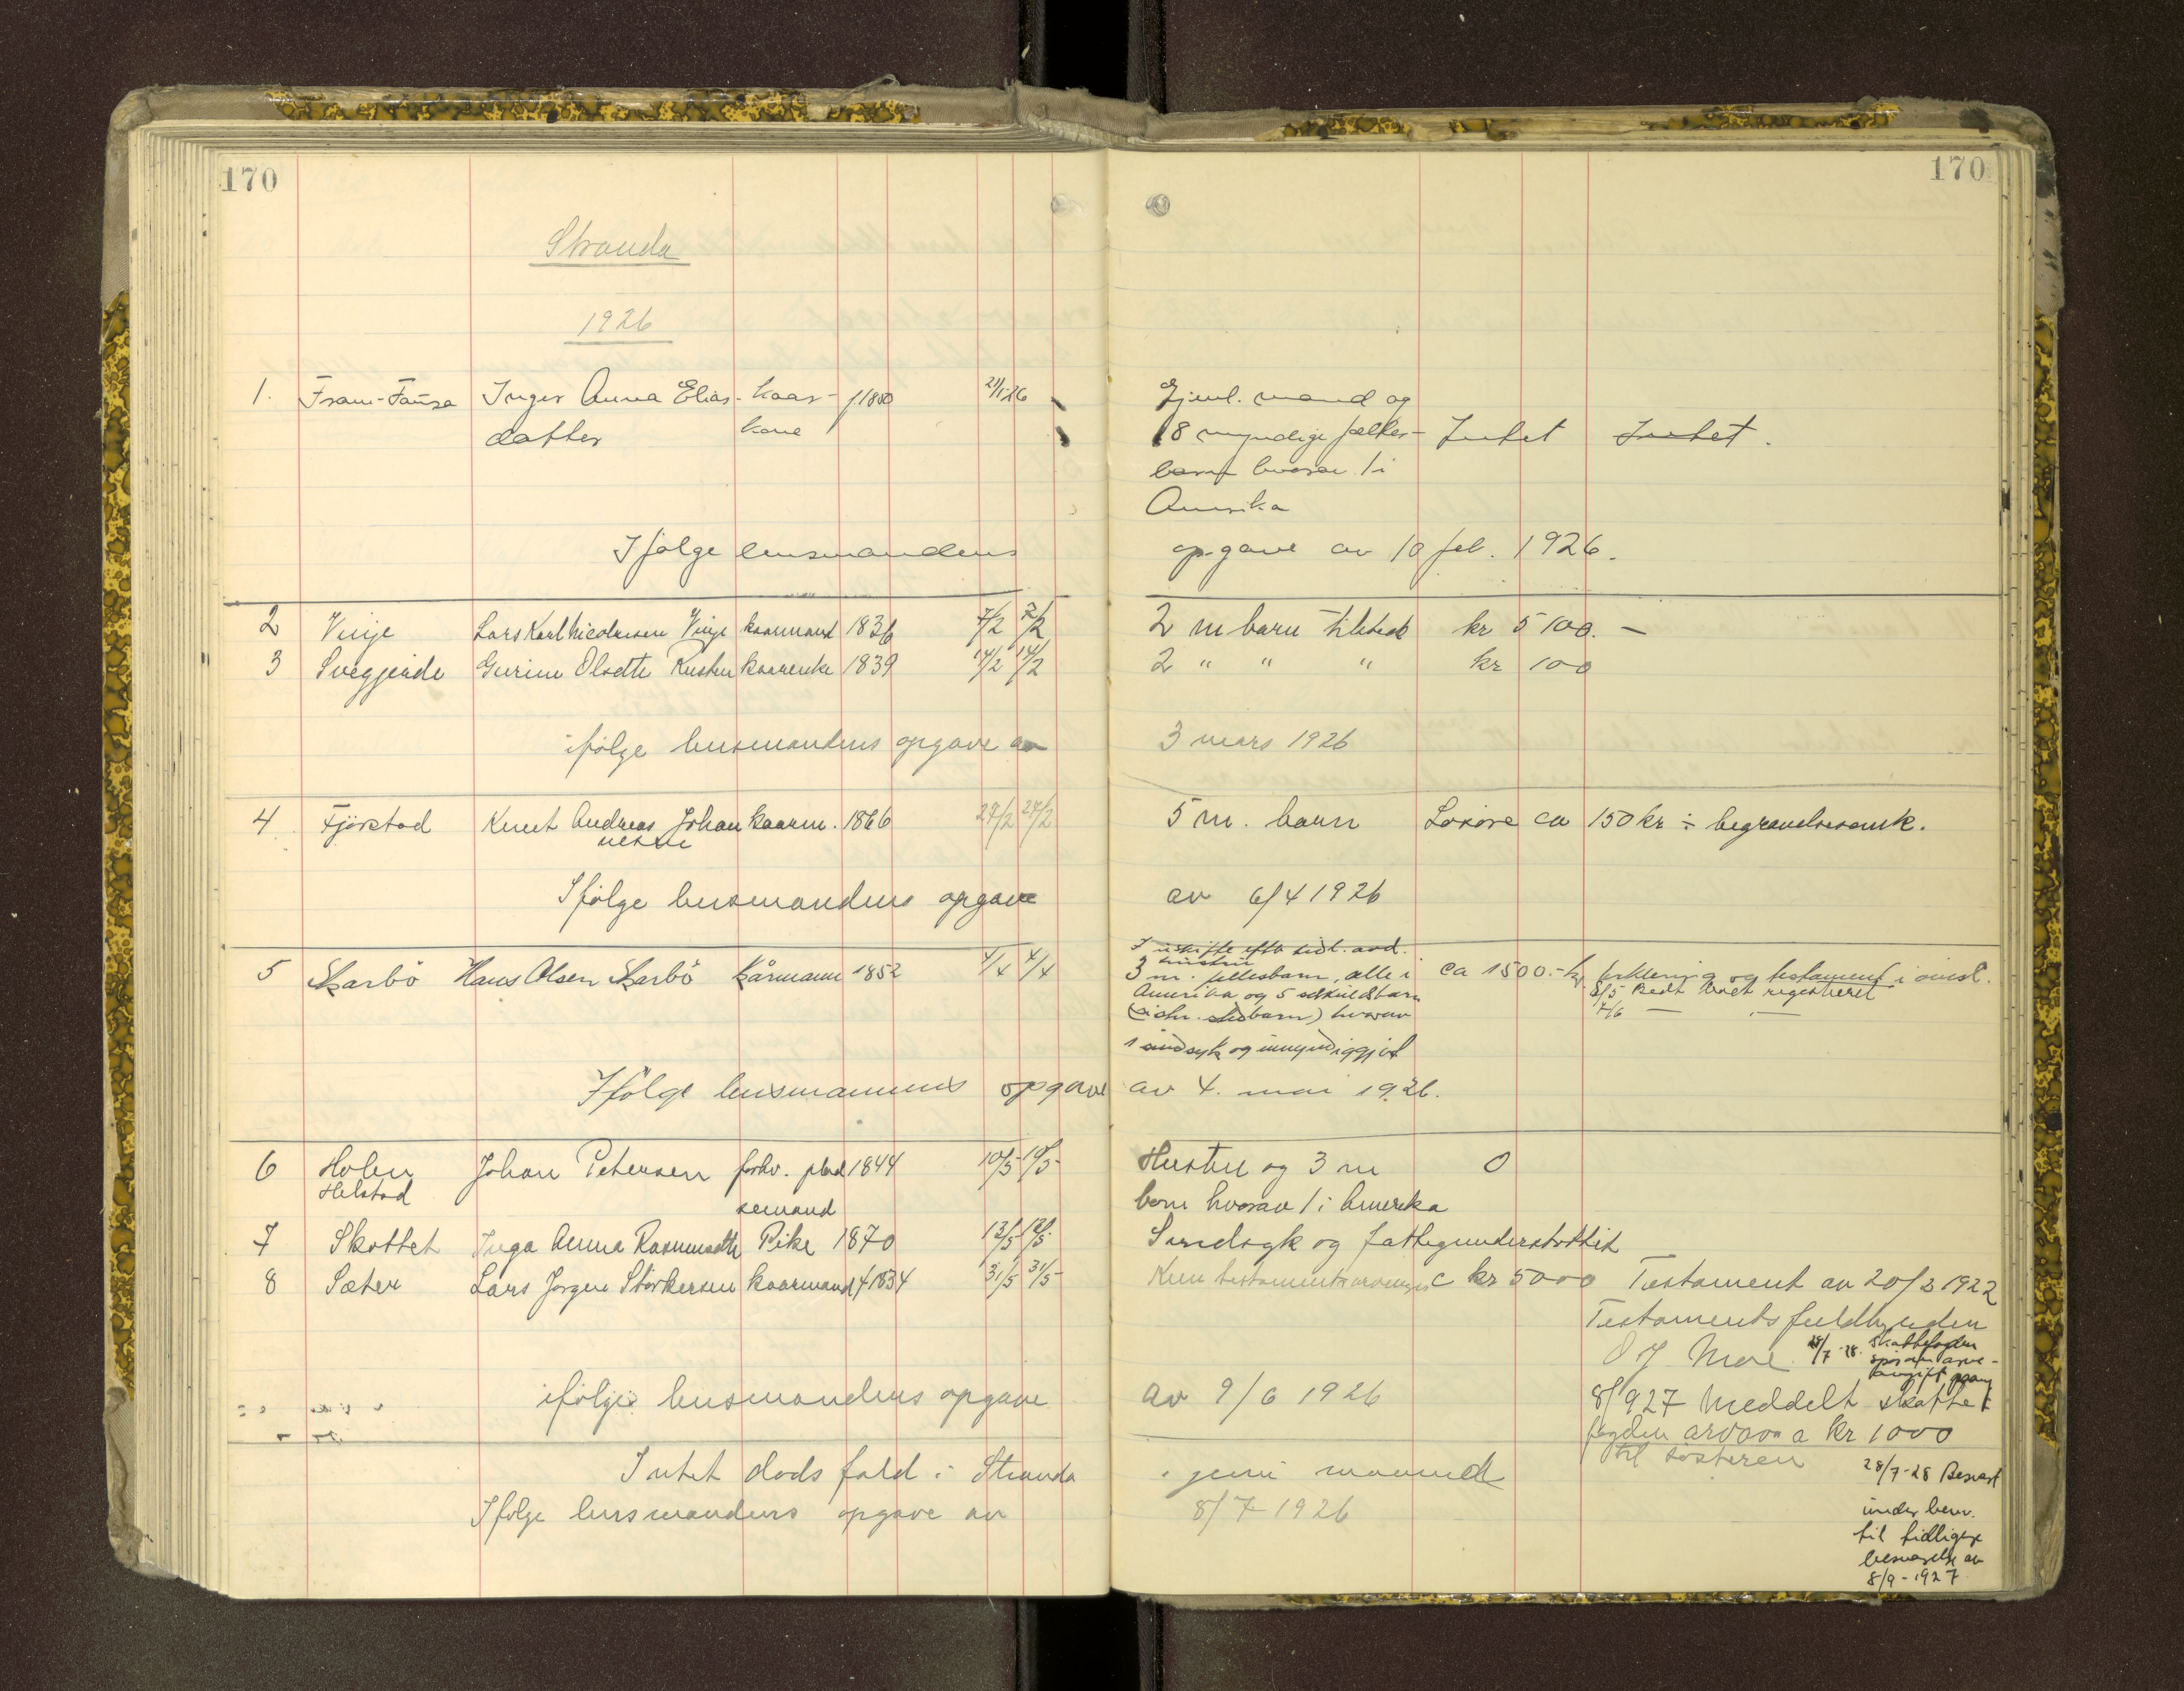 170
170
Stranda
1926
1. Fram-Fausa Inger Anna Elias- kaar- f. 1850 21/1 26 Gjenl. mand og
datter kone 8 myndige fælles- Intet Intet.
barn hvorav 1 i
Amerika
Ifølge lensmandens opgave av 10 feb. 1926.
2 Vinje Lars Karl Nicolausen Vinje kaarmand 1836 7/2 7/2 2 m barn tilstede kr 5100.-
3 Svegjerde Gurine Olsdtr Rusten kaarenke 1839 14/2 14/2 2 " " " kr 100
ifølge lensmandens opgave av 3 mars 1926
4 Fjørstad Knut Andreas Johan kaarm. 1866 27/2 27/2 5 m. barn Løsøre ca 150 kr ÷ begravelsesomk.
nessen
Ifølge lensmandens opgave av 6/4 1926
5 Skarbö Hans Olsen Skarbö kårmann 1852 4/4 4/4 I uskifte efter tidl. avd.
hustru
3 m. fellesbarn, alle i ca 1500.- kr. erklæring og testament i avesl.
Amerika og 5 særkuldsbarn 8/5 Bedt testament registreret
(avdøs stedbarn) hvorav 7/6 — —
1 sindsyk og umyndiggjort
Ifølge lensmannens opgave av 4. mai 1926.
6 Holen Johan Petersen forhv. plad 1844 10/5 10/5 Hustru og 3 m 0
Helstad semand barn hvorav 1 i Amerika
7 Skottet Inga Anna Rasmusdtr Pike 1870 12/5 12/5 Sindsyk og fattigunderstøttet
8 Sæter Lars Jørgen Størkersen kaarmand f 1834 31/5 31/5 Kun testamentsarvinger c kr 5000 Testament av 20/2 1922
Testamentsfuldbyrden
O J Moe 28/7-28. Skattefogden
spør om arve-
avgift paany
ifølge lensmandens opgave av 9/6 1926 8/9 27 Meddelt skatte
fogden arvavg a kr 1000
til søsteren
Intet dødsfald i Stranda i juni maaned
Ifølge lensmandens opgave av 8/7 1926
28/7-28 Besvart
under henv.
til tidligere
besvarelse av
8/9-1927